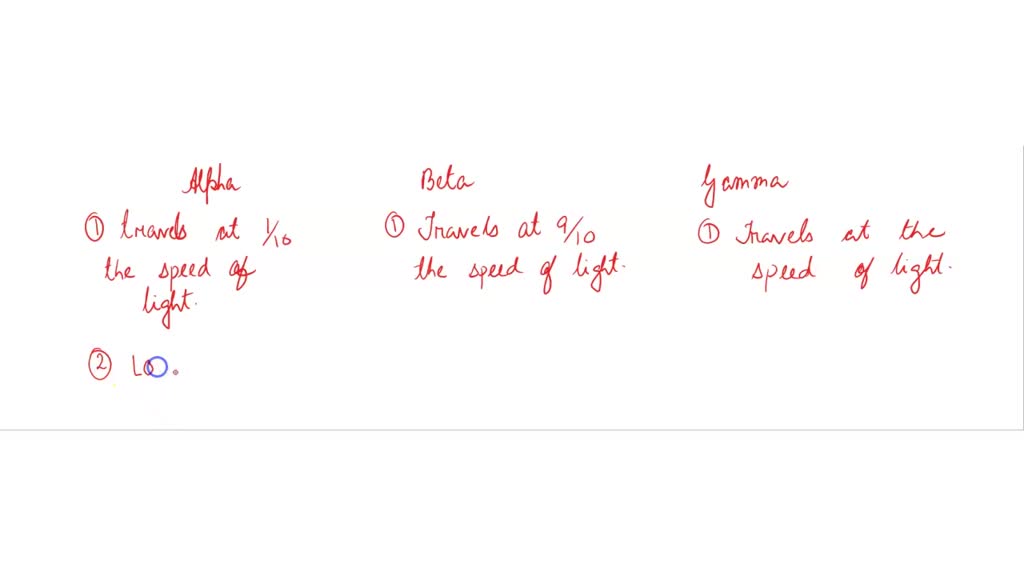 Alpha
① travels at 1/10
the speed of
light.
② Lo
Beta
① Travels at 9/10
the speed of light.
Gamma
① Travels at the
speed of light.